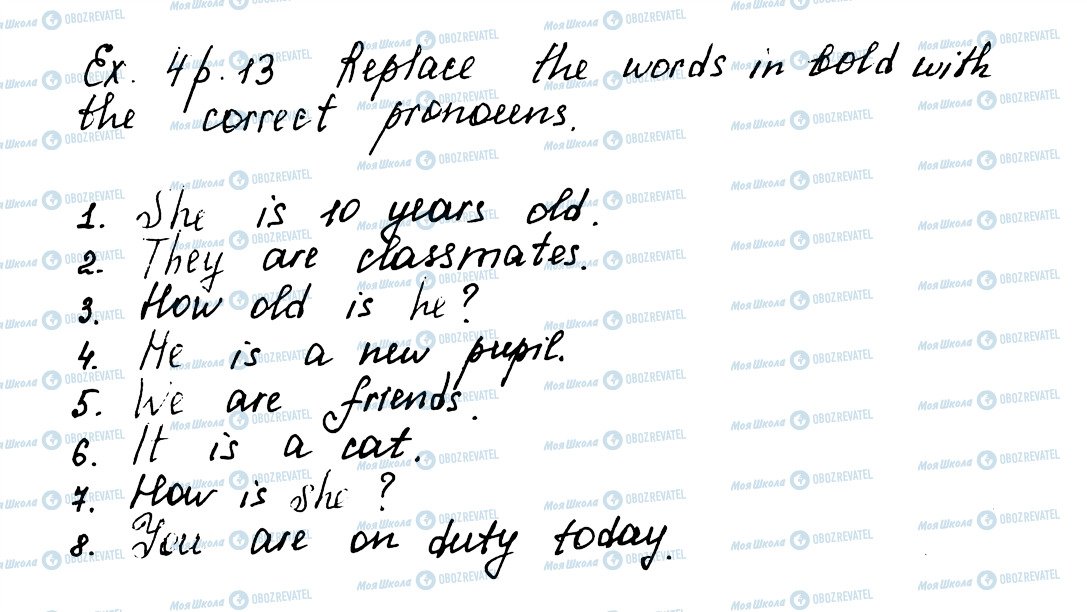 Ex. 4 p. 13 Replace the words in bold with
the correct pronouns.
1. She is 10 years old.
2. They are classmates.
3. How old is he?
4. He is a new pupil.
5. We are friends.
6. It is a cat.
7. How is she?
8. You are on duty today.
МояШкола OBOZREVATEL